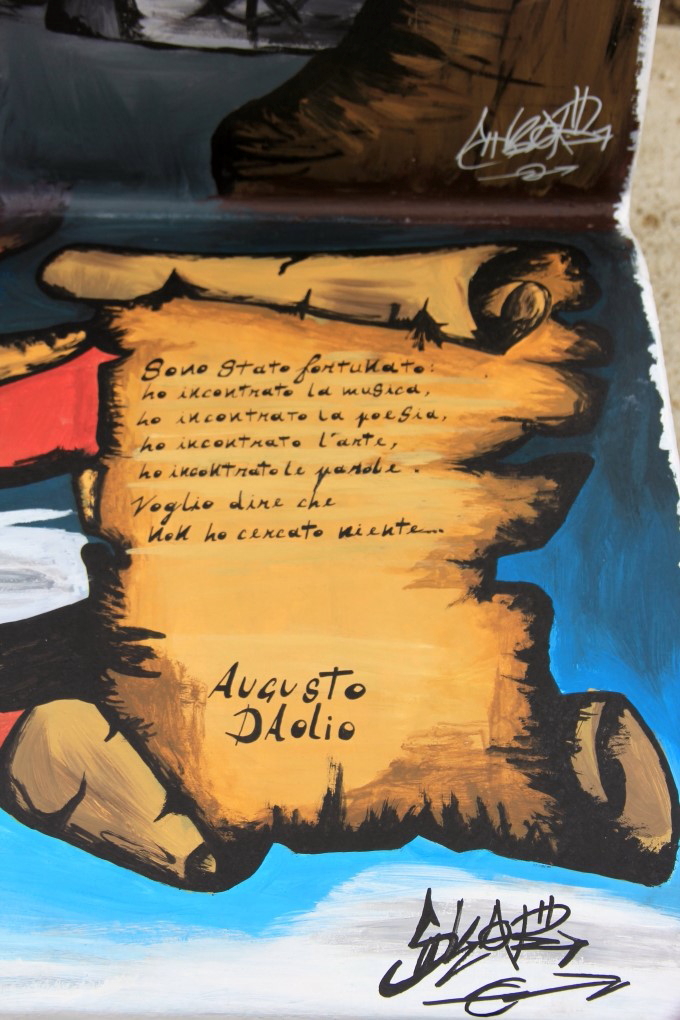 Sono Stato fortunato:
ho incontrato la musica,
ho incontrato la poesia,
ho incontrato l'arte,
ho incontrato le parole.
Voglio dire che
Non ho cercato niente...
Augusto
DAolio